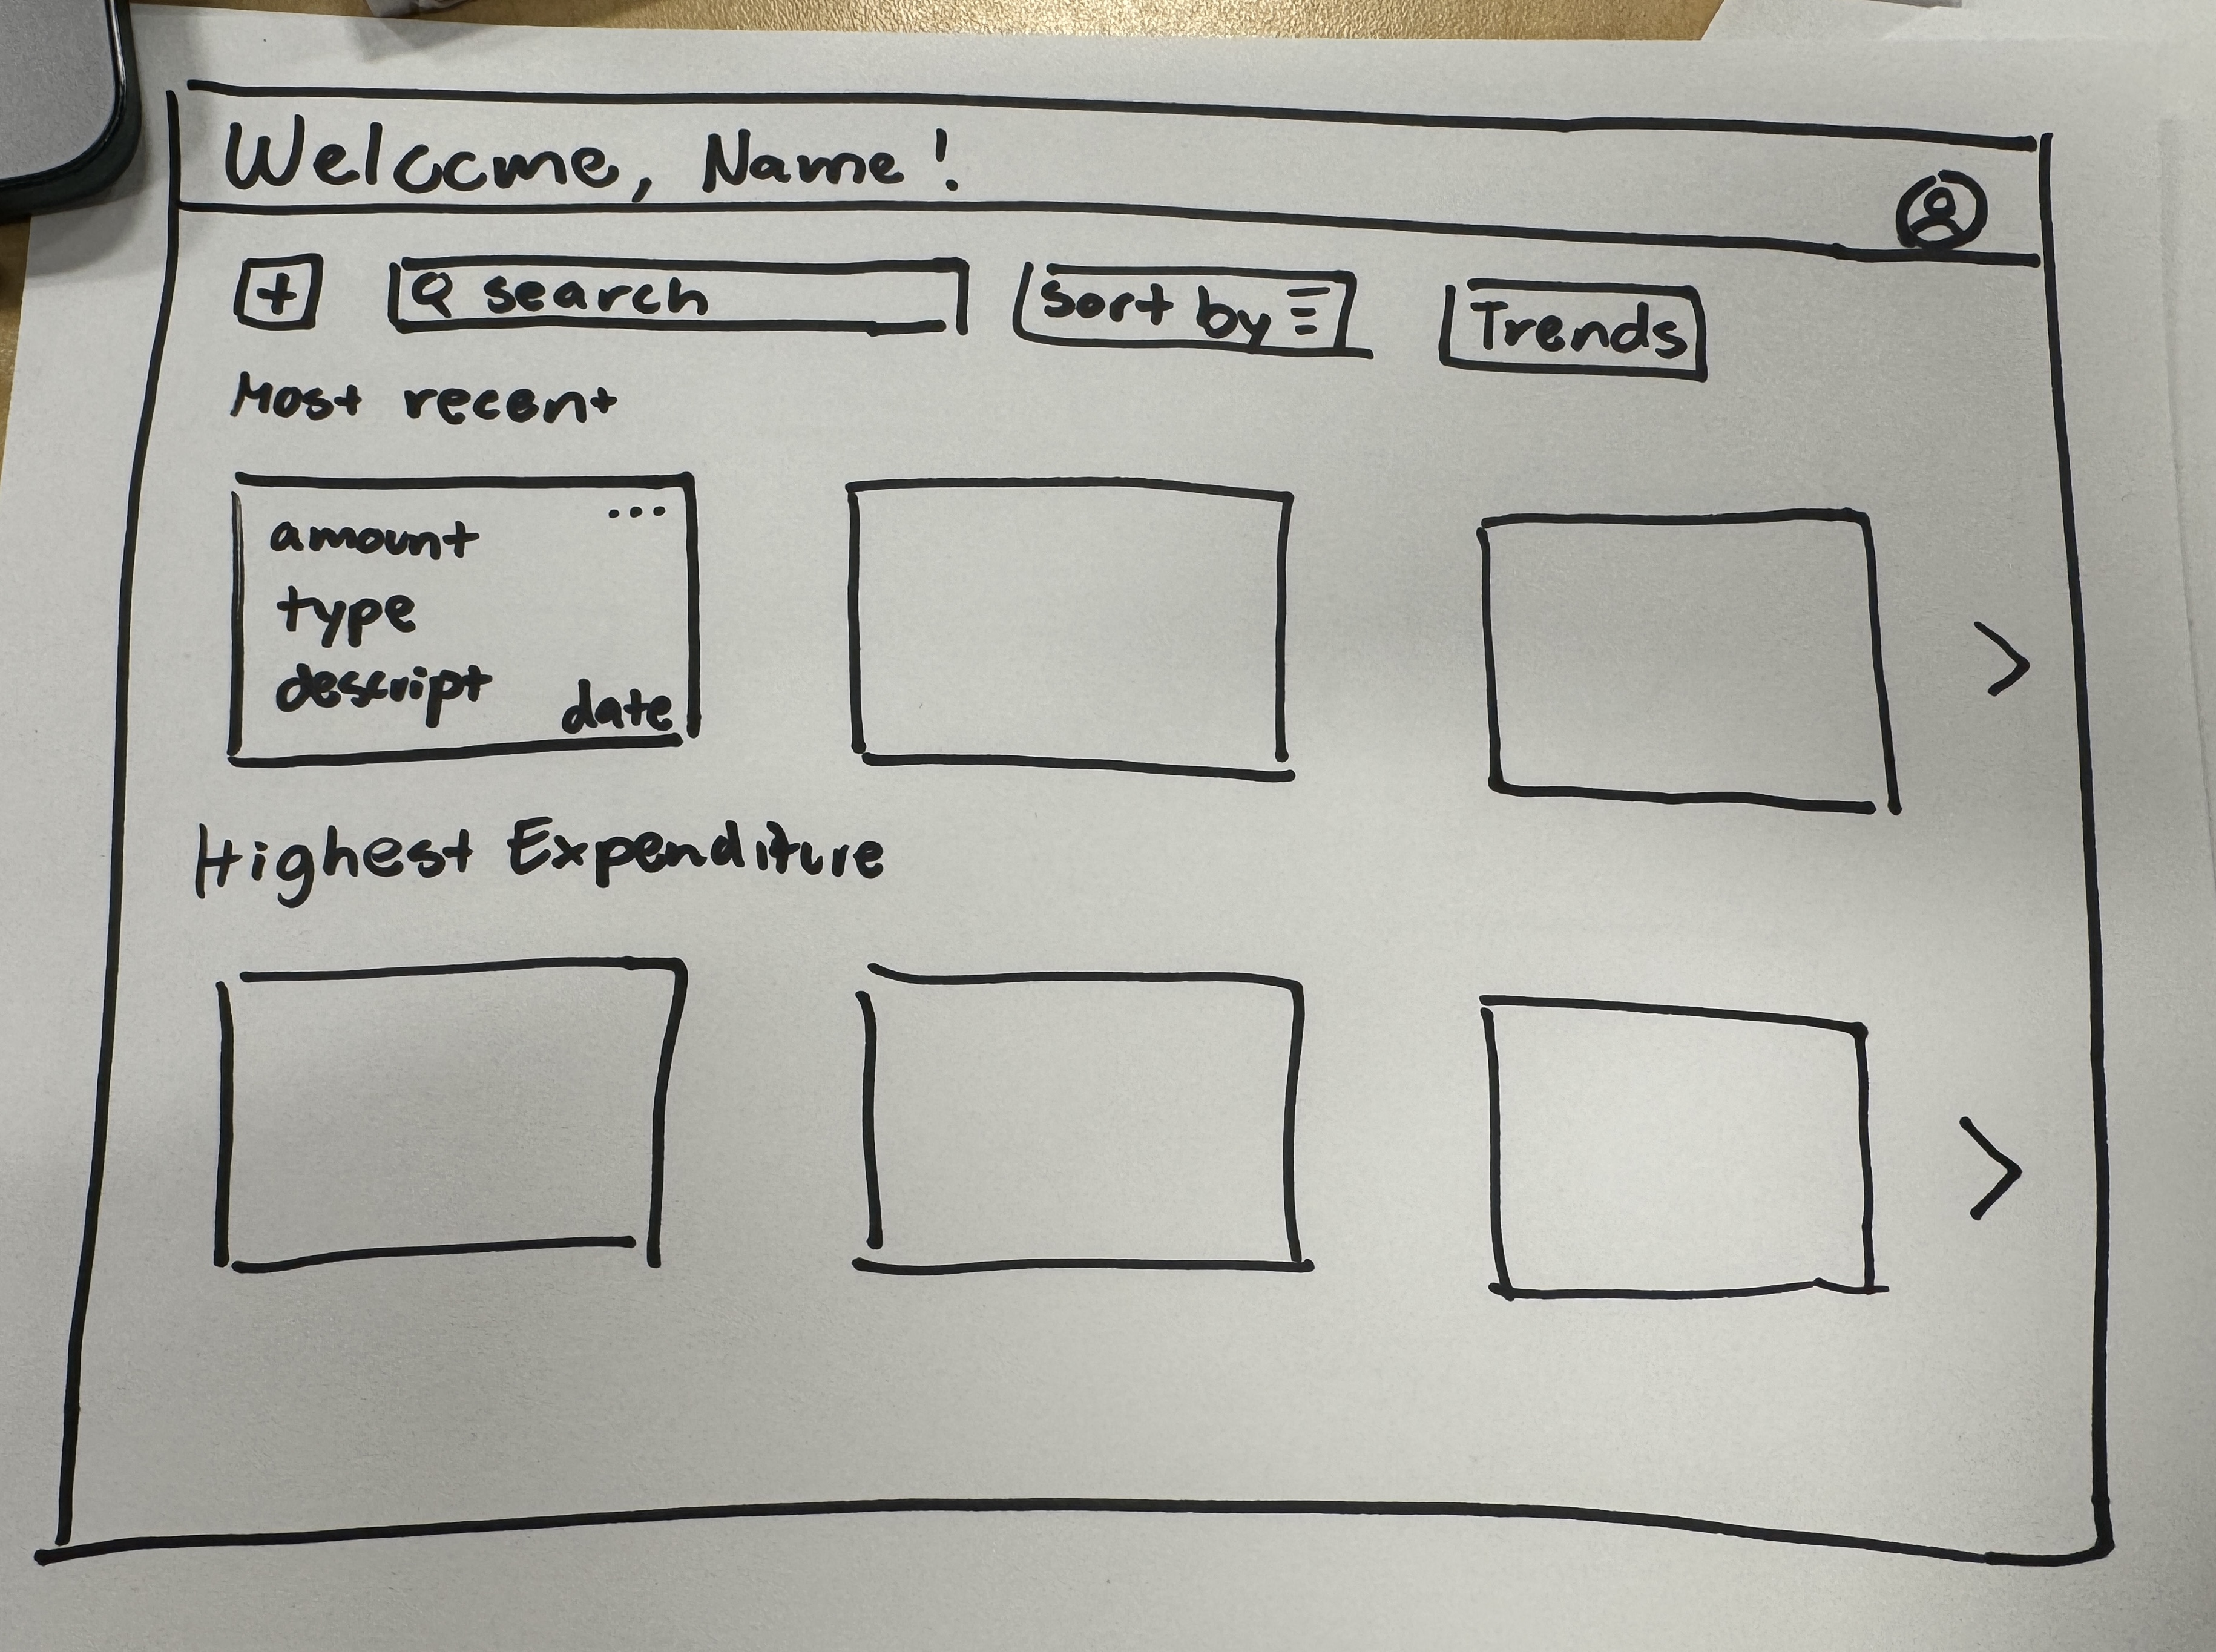 Welcome, Name!
+
search
Sort by
Trends
Most recent
...
amount
type
descript
date
Highest Expenditure
>
>